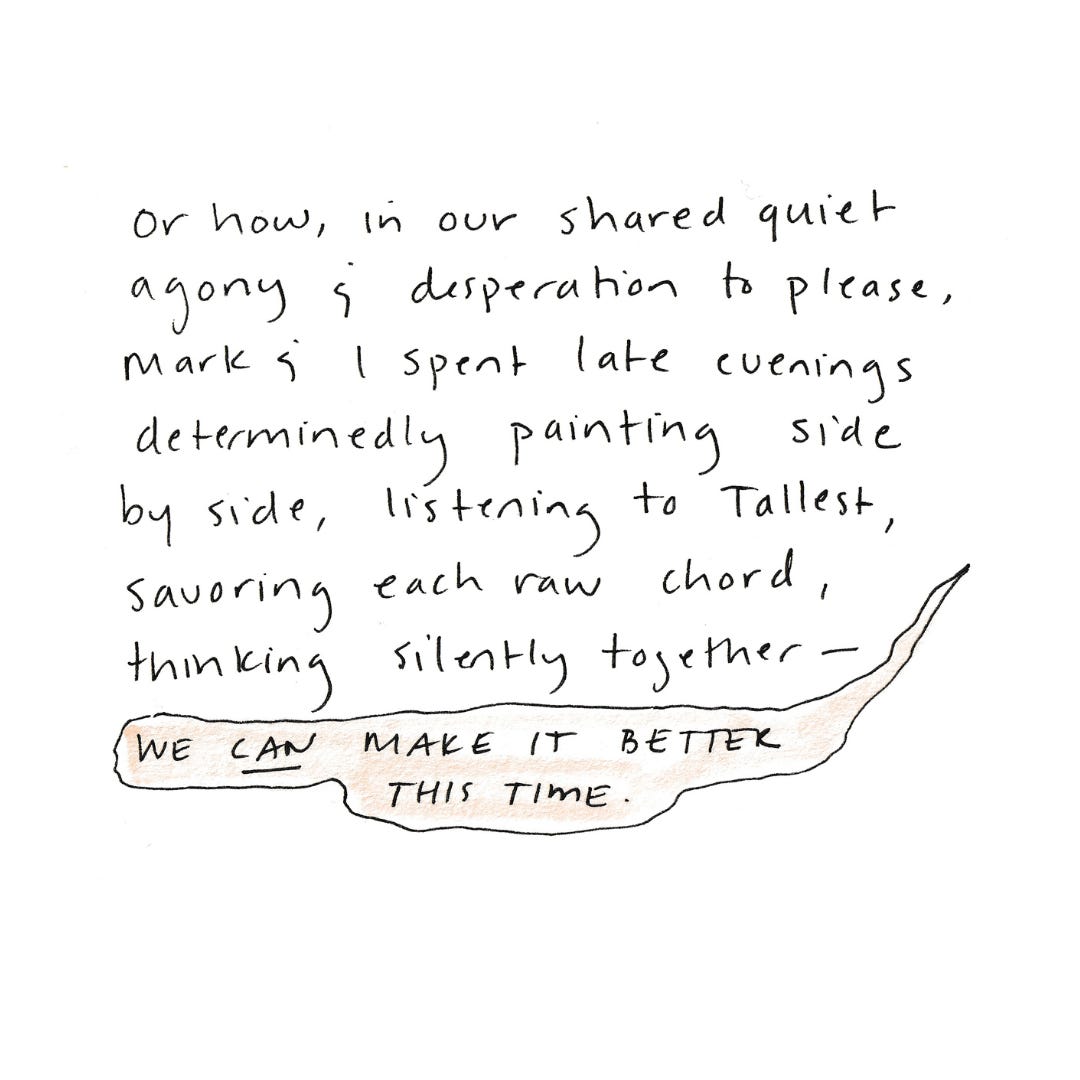 Or how, in our shared quiet
agony & desperation to please,
Mark & I spent late evenings
determinedly painting side
by side, listening to Tallest,
savoring each raw chord,
thinking silently together —
WE CAN MAKE IT BETTER
THIS TIME.